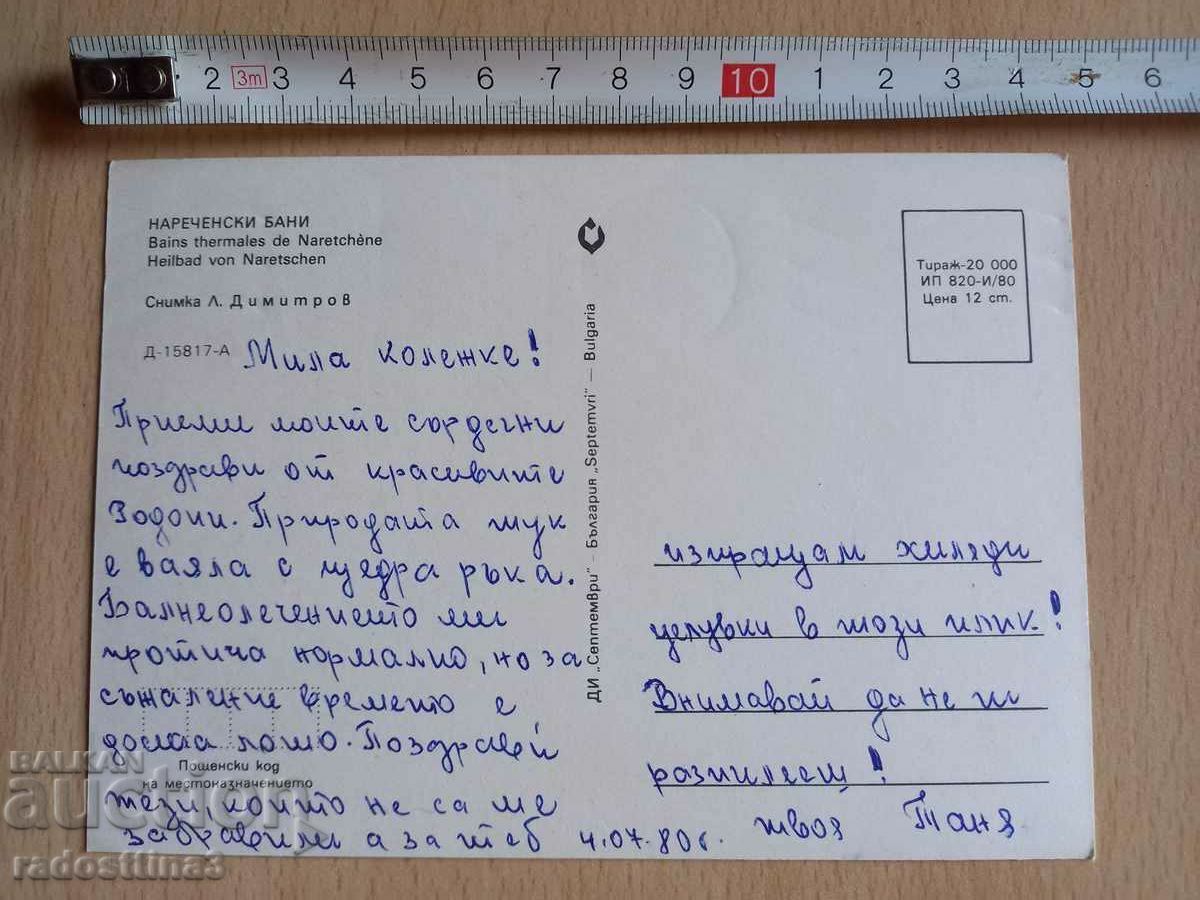 2 3m 3 4 5 6 7 8 9 10 1 2 3 4 5 6
НАРЕЧЕНСКИ БАНИ
Bains thermales de Naretchène
Heilbad von Naretschen
Снимка Л. Димитров
Д-15817-А
Мила колежке!
Приеми моите сърдечни
поздрави от красивите
Родопи. Природата тук
е ваяла с щедра ръка.
Балнеолечението ми
протича нормално, но за
съжаление времето е
доста лошо. Поздравй
тези, които не са ме
забравили а за теб 4.07.80г.
Пощенски код
на местоназначението
ДИ „Септември" - България „Septemvri" — Bulgaria
Тираж-20 000
ИП 820-И/80
Цена 12 ст.
изпращам хиляди
целувки в този пик!
Внимавай да не ги
разпилееш!
твоя Таня
BALKAN
auction
radosttina3